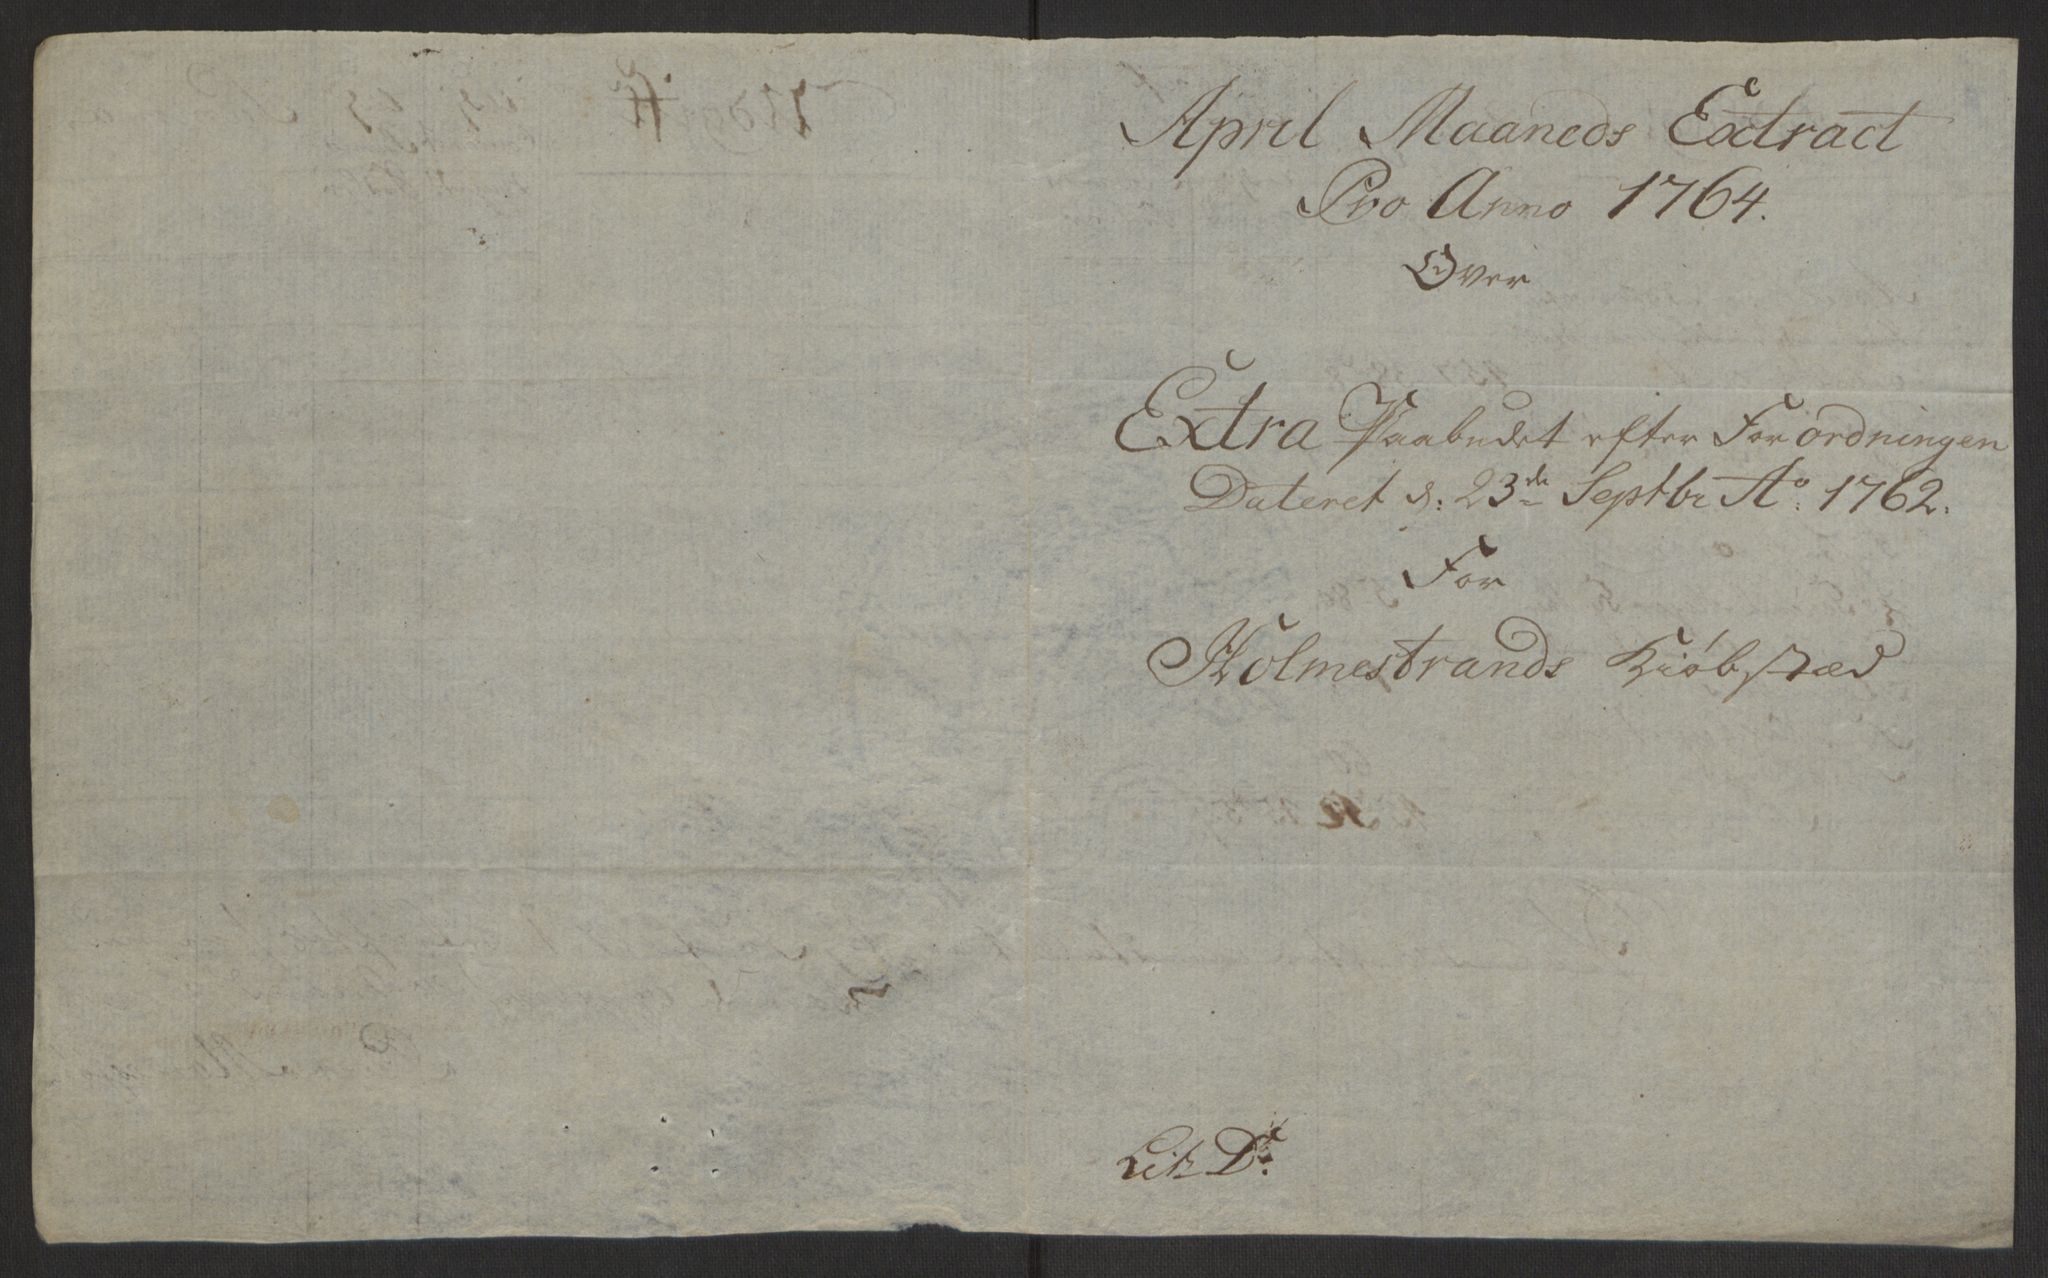 April Maaneds Extract
Pro Anno 1764.
Over
Extra Paabudet efter Forordningen
Dateret d: 23de Septbr Ao: 1762.
For
Holmestrands Kiøbstæd
Lit: D: